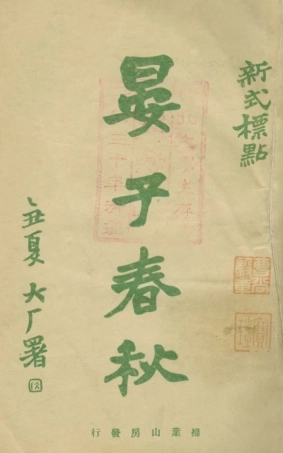 新式標點
晏子春秋
乙丑夏 大厂署
掃葉山房發行